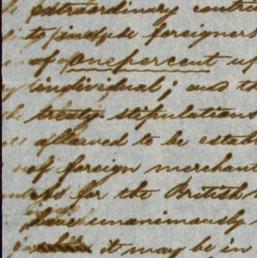 extraordinary contri
to include foreigners
of one percent up
individual; and th
treaty stipulations
allowed to be estab
of foreign merchant
As for the British
have unanimously
it may be in